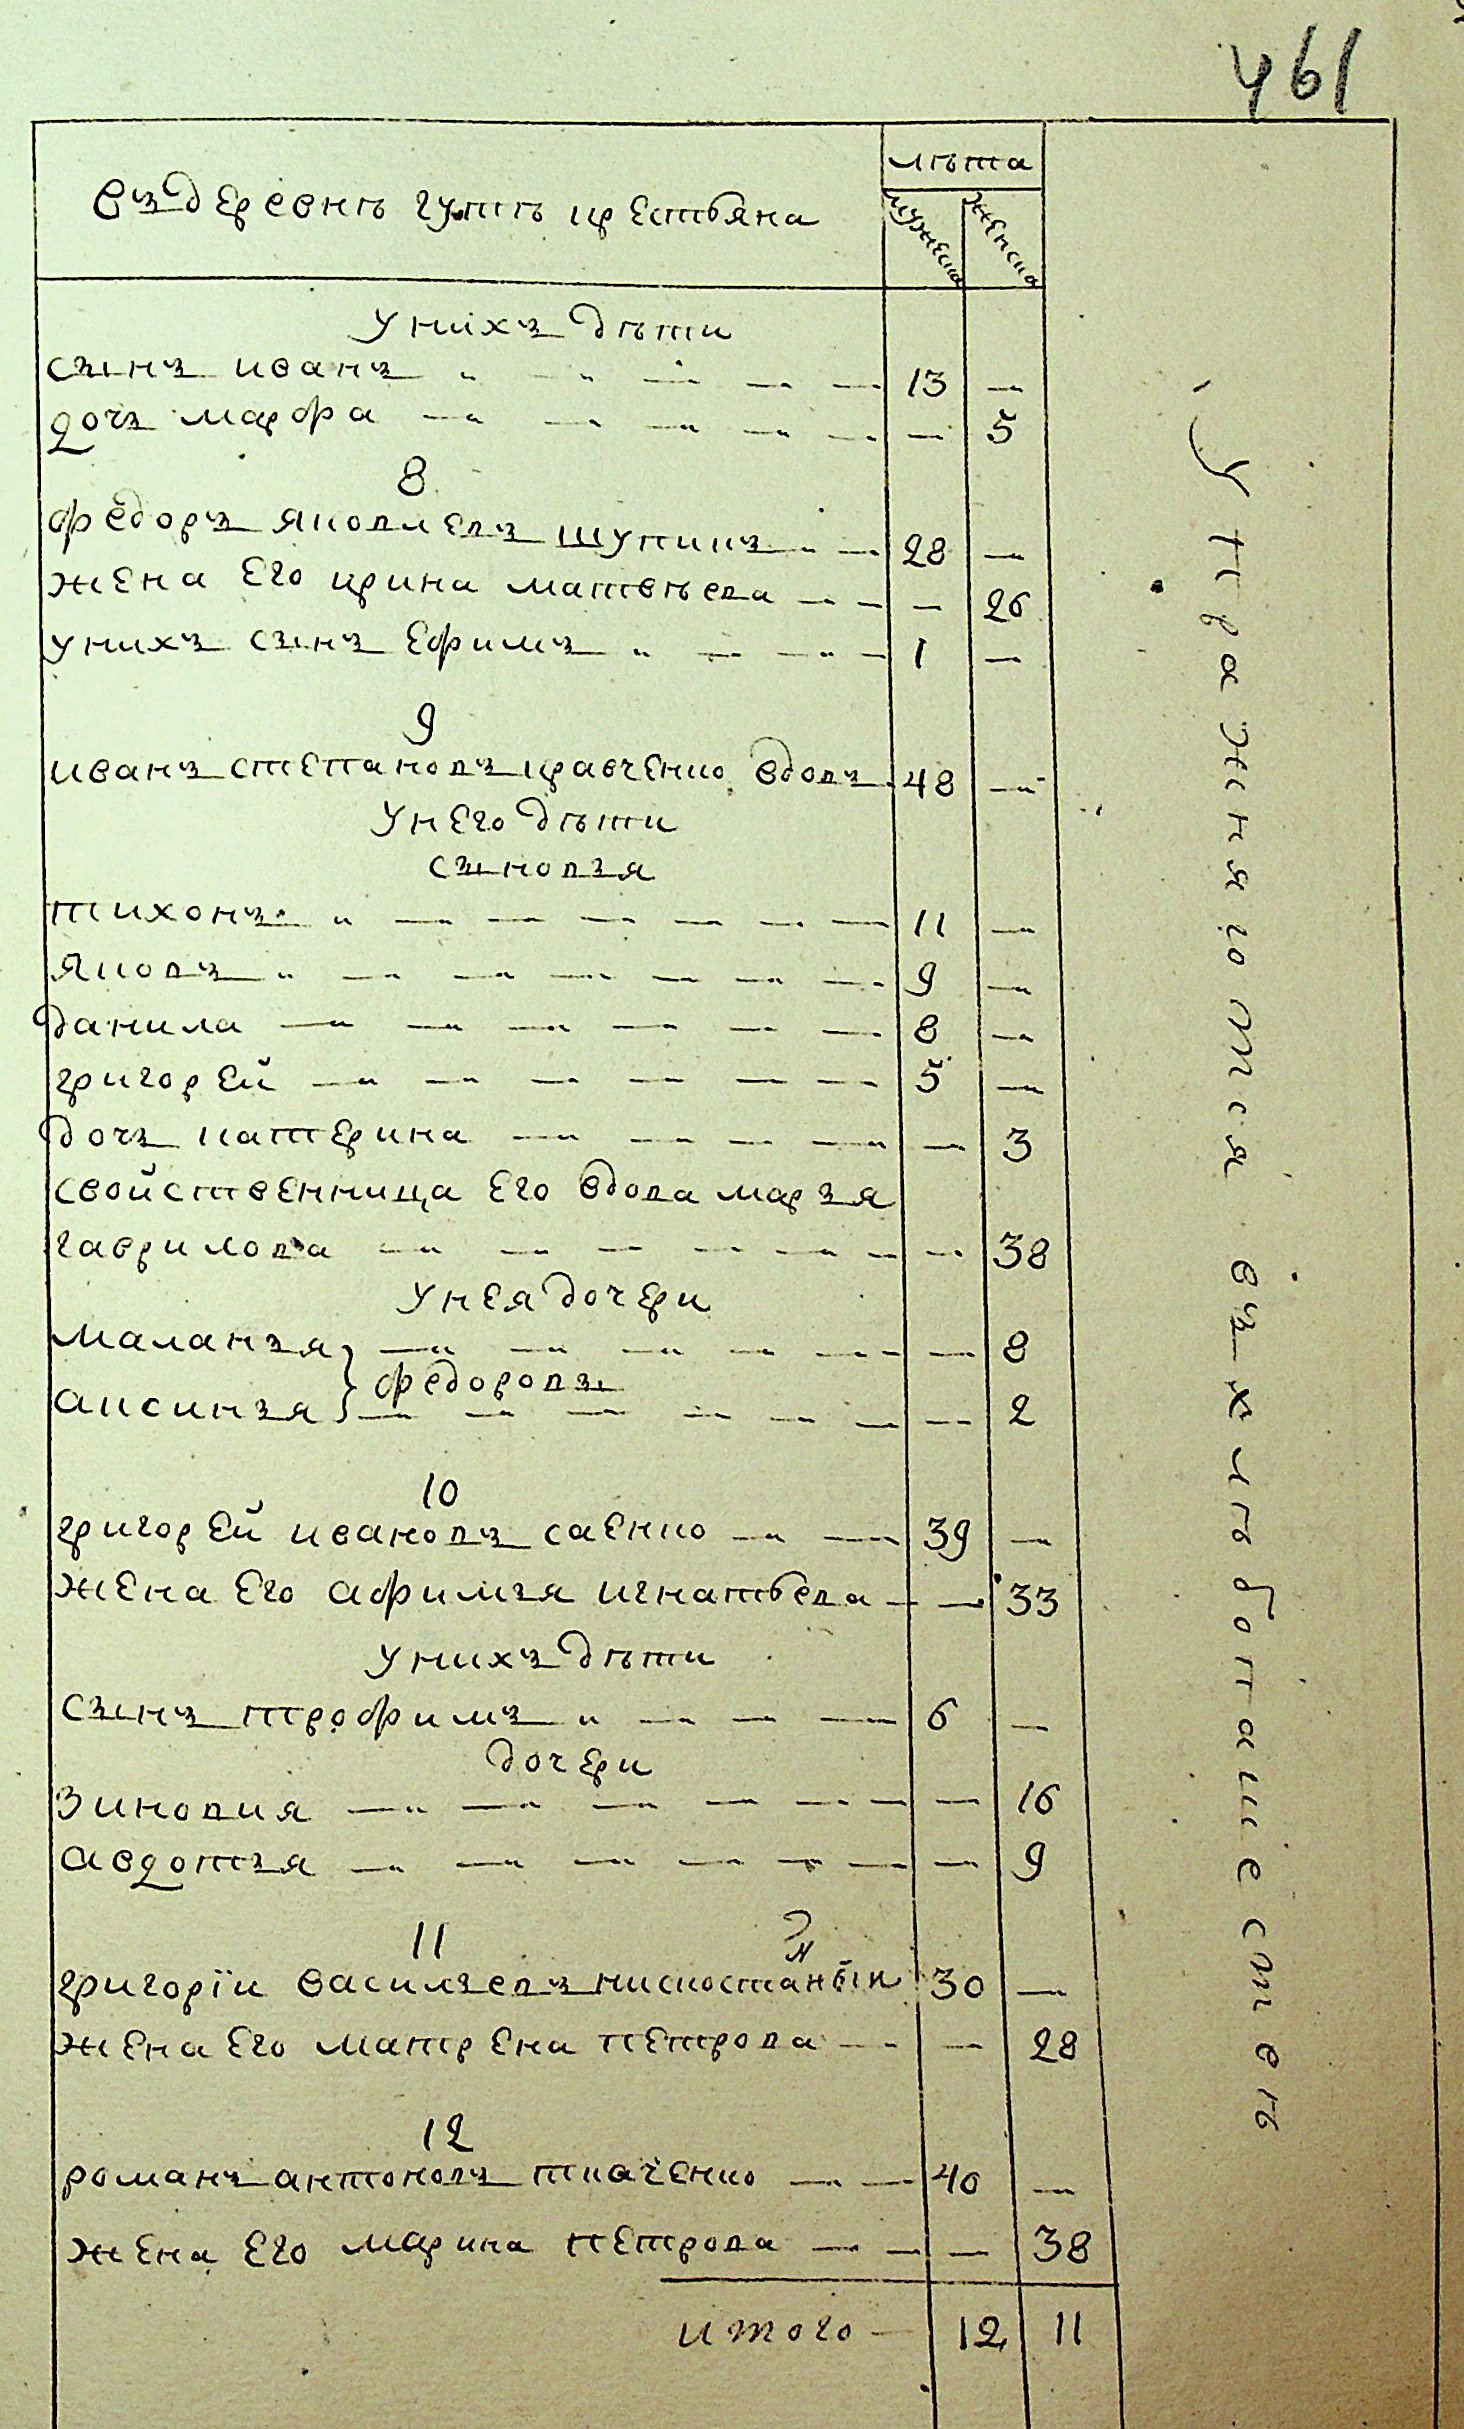 461
въ деревнѣ гутѣ крестьяна
лѣта
мужеска
женска
У нихъ дѣти
сынъ иванъ 13 —
дочь марфа — 5
8
федоръ яковлевъ шупикъ 28 —
жена его ирина матвѣева — 26
у нихъ сынъ Ефимъ 1 —
9
иванъ степановъ кравченко вдовъ 48 —
У него дѣти
сыновья
тихонъ 11 —
Яковъ 9 —
данила 8 —
григорей 5 —
дочь катерина — 3
свойственница его вдова марья
гаврилова — 38
У нея дочери
маланья — 8
федоровы
аксинья — 2
10
григорей ивановъ саенко 39 —
жена его афимья игнатьева — 33
У нихъ дѣти
сынъ трофимъ 6 —
дочери
Зиновия — 16
авдотья — 9
11
григорїи васильевъ 30 —
жена его матрена петрова — 28
12
романъ антоновъ ткаченко 40 —
жена его марина петрова — 38
итого — 12 11
Упражняются въ хлѣбопашествѣ